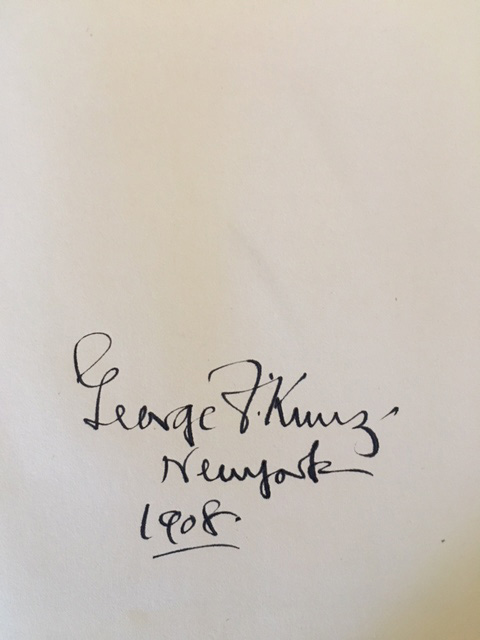 George F. Kunz.
Newyork
1908.